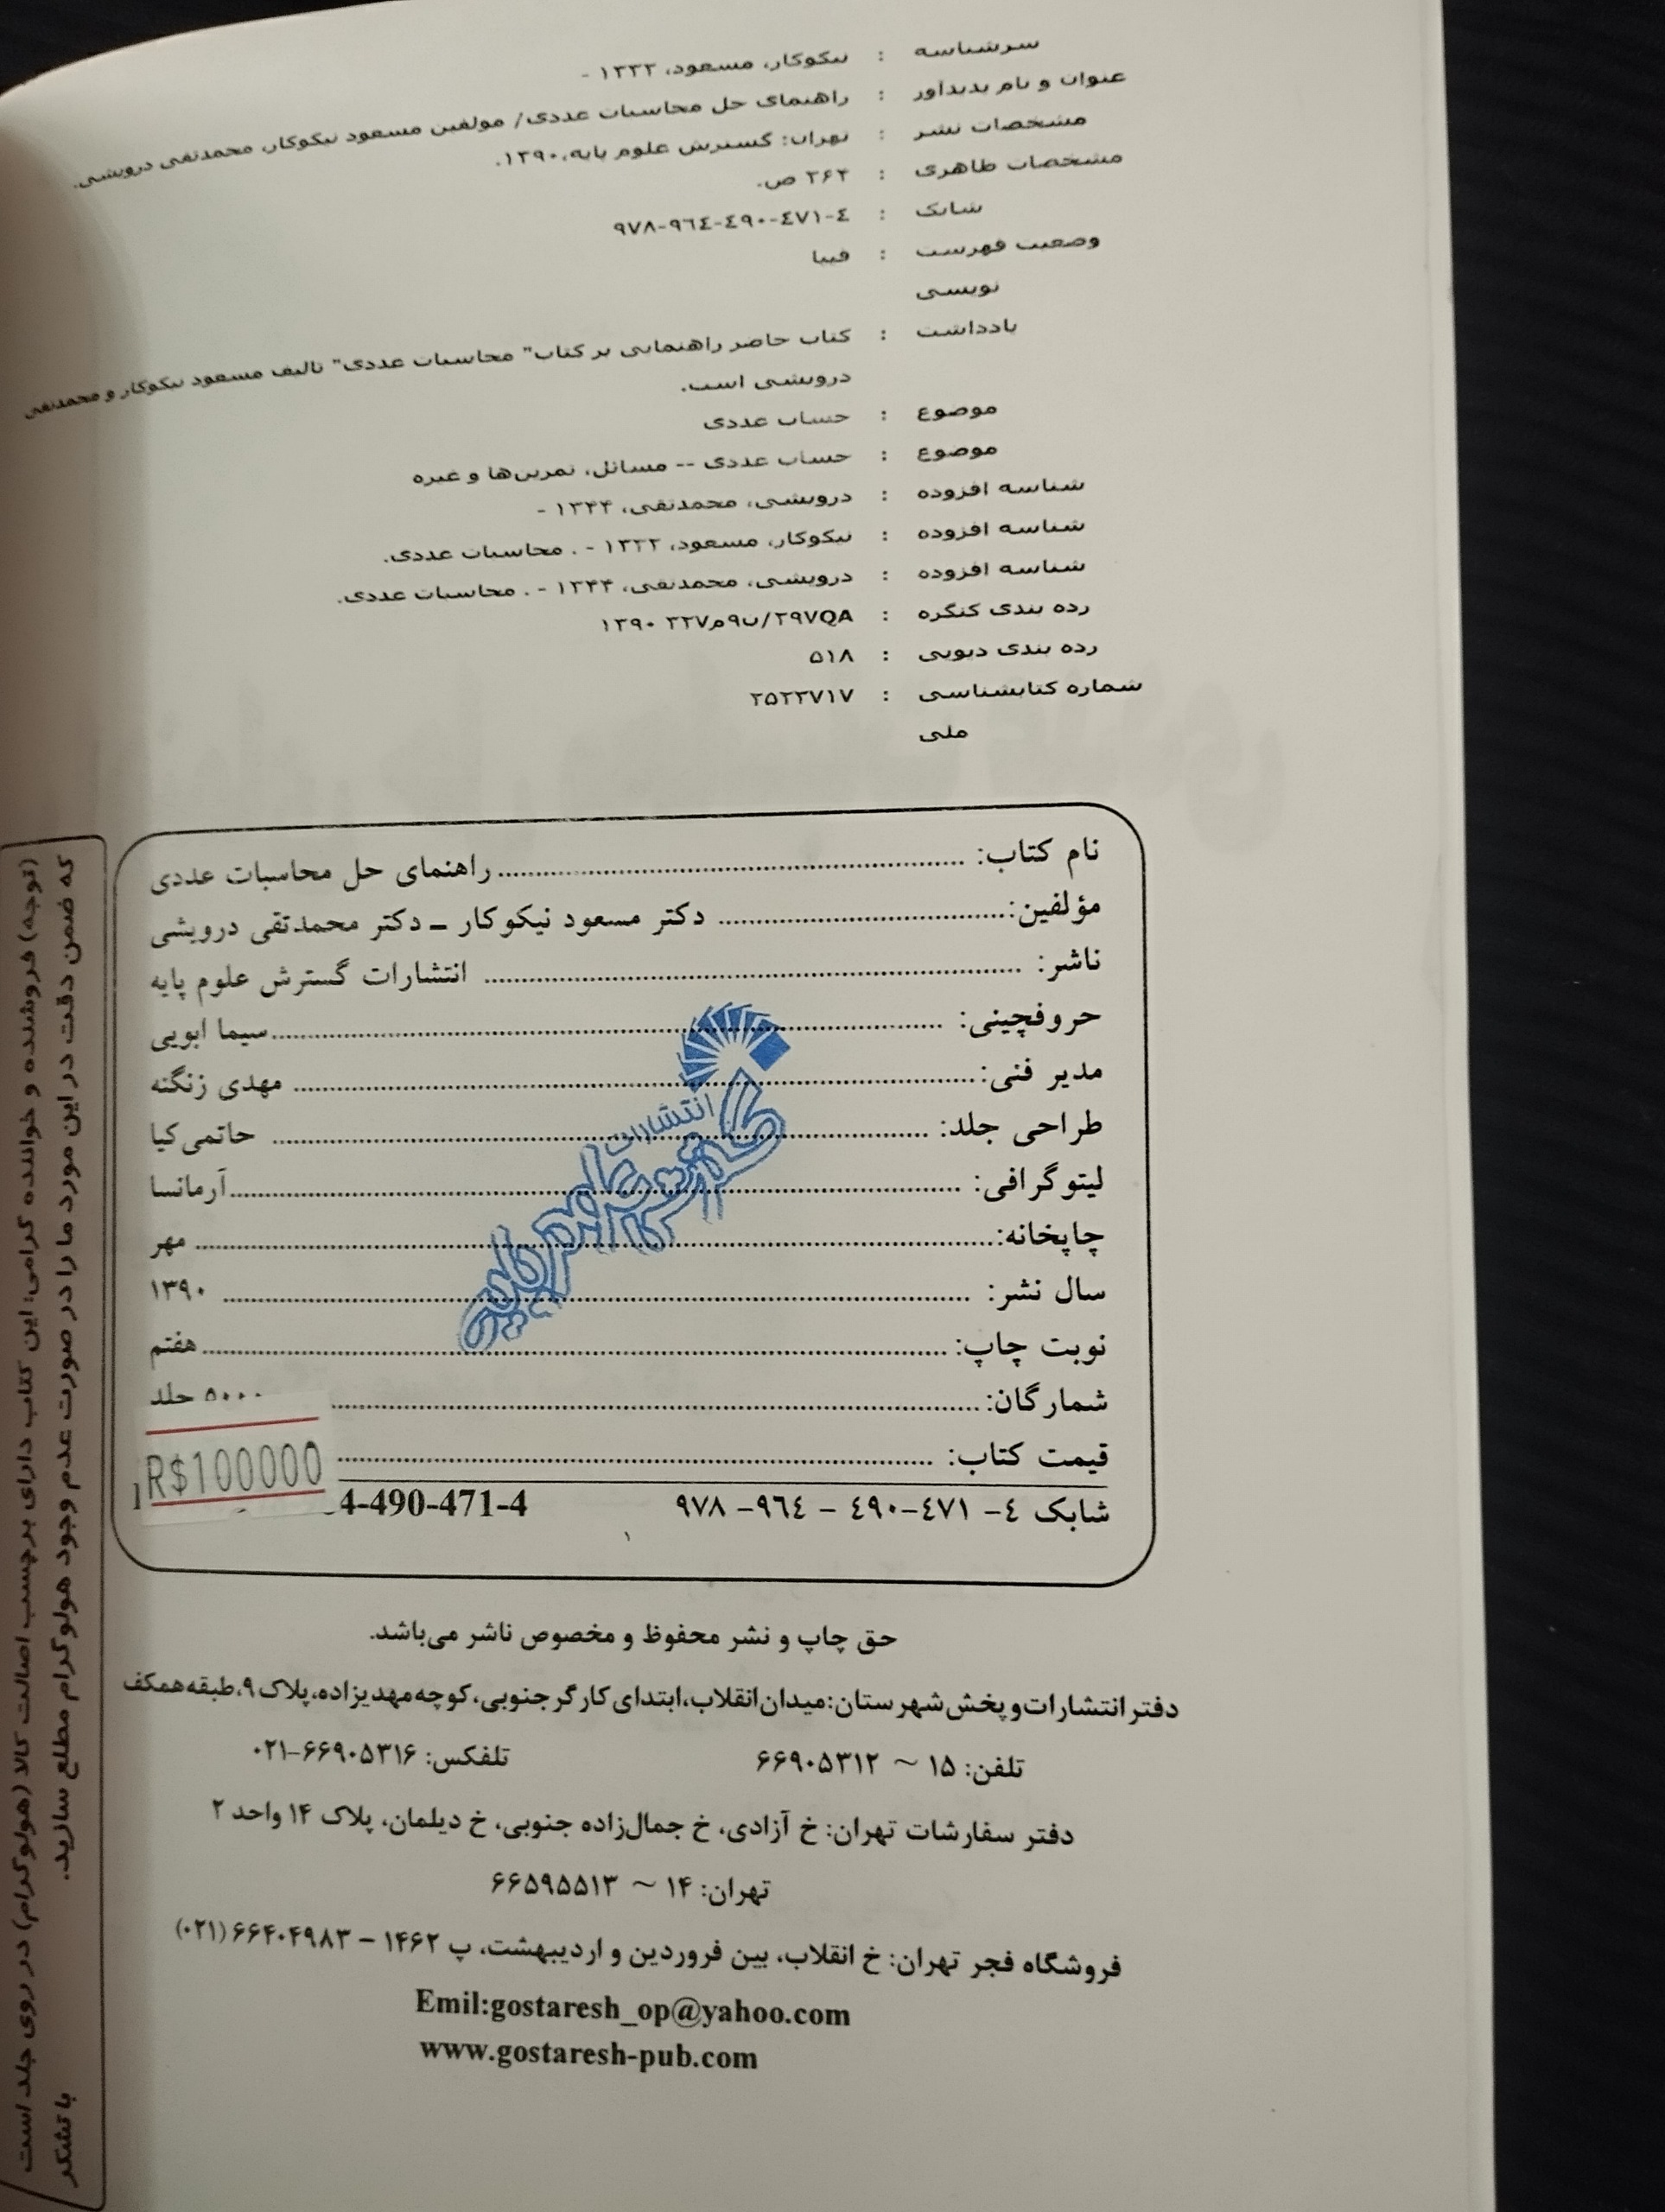 سرشناسه : نیکوکار، مسعود، ۱۳۳۳ -
عنوان و نام پدیدآور : راهنمای حل محاسبات عددی/ مولفین مسعود نیکوکار، محمدتقی درویشی.
مشخصات نشر : تهران: گسترش علوم پایه،۱۳۹۰.
مشخصات ظاهری : ۲۶۴ ص.
شابک : ۹۷۸-۹٦٤-٤۹۰-٤۷۱-٤
وضعیت فهرست : فیپا
نویسی
یادداشت : کتاب حاضر راهنمایی بر کتاب" محاسبات عددی" تالیف مسعود نیکوکار و محمدتقی
درویشی است.
موضوع : حساب عددی
موضوع : حساب عددی -- مسائل، تمرین‌ها و غیره
شناسه افزوده : درویشی، محمدتقی، ۱۳۴۴ -
شناسه افزوده : نیکوکار، مسعود، ۱۳۳۳ - . محاسبات عددی.
شناسه افزوده : درویشی، محمدتقی، ۱۳۴۴ - . محاسبات عددی.
رده بندی کنگره : ۲۹۷QA/ن۹م۲۲۷ ۱۳۹۰
رده بندی دیویی : ۵۱۸
شماره کتابشناسی : ۲۵۲۳۷۱۷
ملی
نام کتاب: ........ راهنمای حل محاسبات عددی
مؤلفین: ........ دکتر مسعود نیکوکار ـ دکتر محمدتقی درویشی
ناشر: ........ انتشارات گسترش علوم پایه
حروفچینی: ........ سیما ابویی
مدیر فنی: ........ مهدی زنگنه
طراحی جلد: ........ حاتمی‌کیا
لیتوگرافی: ........ آرمانسا
چاپخانه: ........ مهر
سال نشر: ........ ۱۳۹۰
نوبت چاپ: ........ هفتم
شمارگان: ........ ۵۰۰۰ جلد
قیمت کتاب: ........
R$100000
شابک ٤- ٤۷۱-٤۹۰ – ۹٦٤- ۹۷۸ 4-490-471-4
انتشارات
گسترش علوم پایه
حق چاپ و نشر محفوظ و مخصوص ناشر می‌باشد.
دفتر انتشارات و پخش شهرستان: میدان انقلاب، ابتدای کارگر جنوبی، کوچه مهدیزاده، پلاک ۹، طبقه همکف
تلفن: ۱۵ ~ ۶۶۹۰۵۳۱۲ تلفکس: ۶۶۹۰۵۳۱۶-۰۲۱
دفتر سفارشات تهران: خ آزادی، خ جمال‌زاده جنوبی، خ دیلمان، پلاک ۱۴ واحد ۲
تهران: ۱۴ ~ ۶۶۵۹۵۵۱۳
فروشگاه فجر تهران: خ انقلاب، بین فروردین و اردیبهشت، پ ۱۴۶۲ – ۶۶۴۰۴۹۸۳ (۰۲۱)
Emil:gostaresh_op@yahoo.com
www.gostaresh-pub.com
(توجه) فروشنده و خواننده گرامی: این کتاب دارای برچسب اصالت کالا (هولوگرام) در روی جلد است
که ضمن دقت در این مورد ما را در صورت عدم وجود هولوگرام مطلع سازید. با تشکر